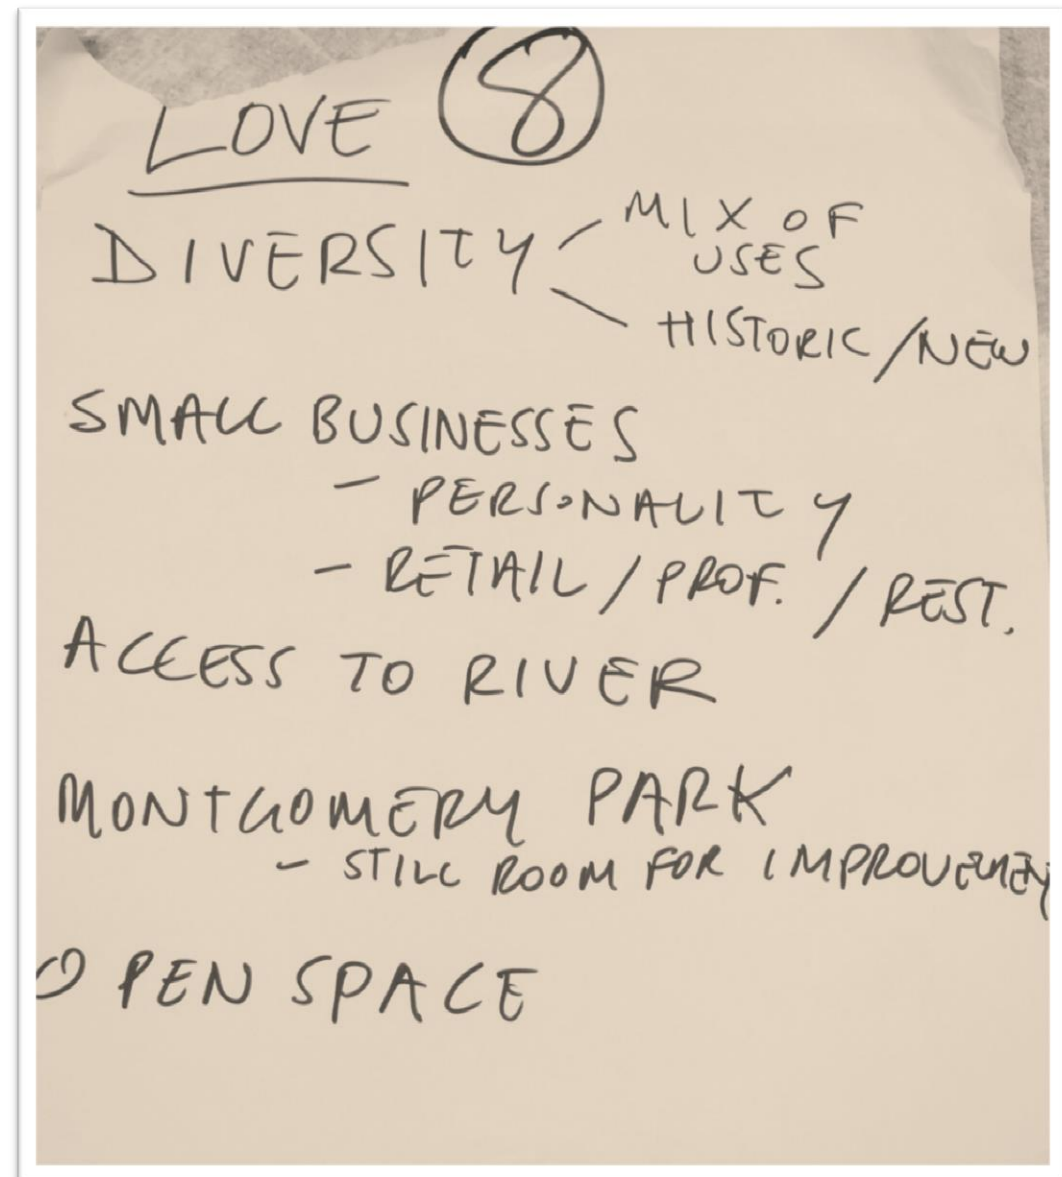 LOVE 8
DIVERSITY
MIX OF
USES
HISTORIC/NEW
SMALL BUSINESSES
- PERSONALITY
- RETAIL / PROF. / REST.
ACCESS TO RIVER
MONTGOMERY PARK
- STILL ROOM FOR IMPROVEMEN
OPEN SPACE